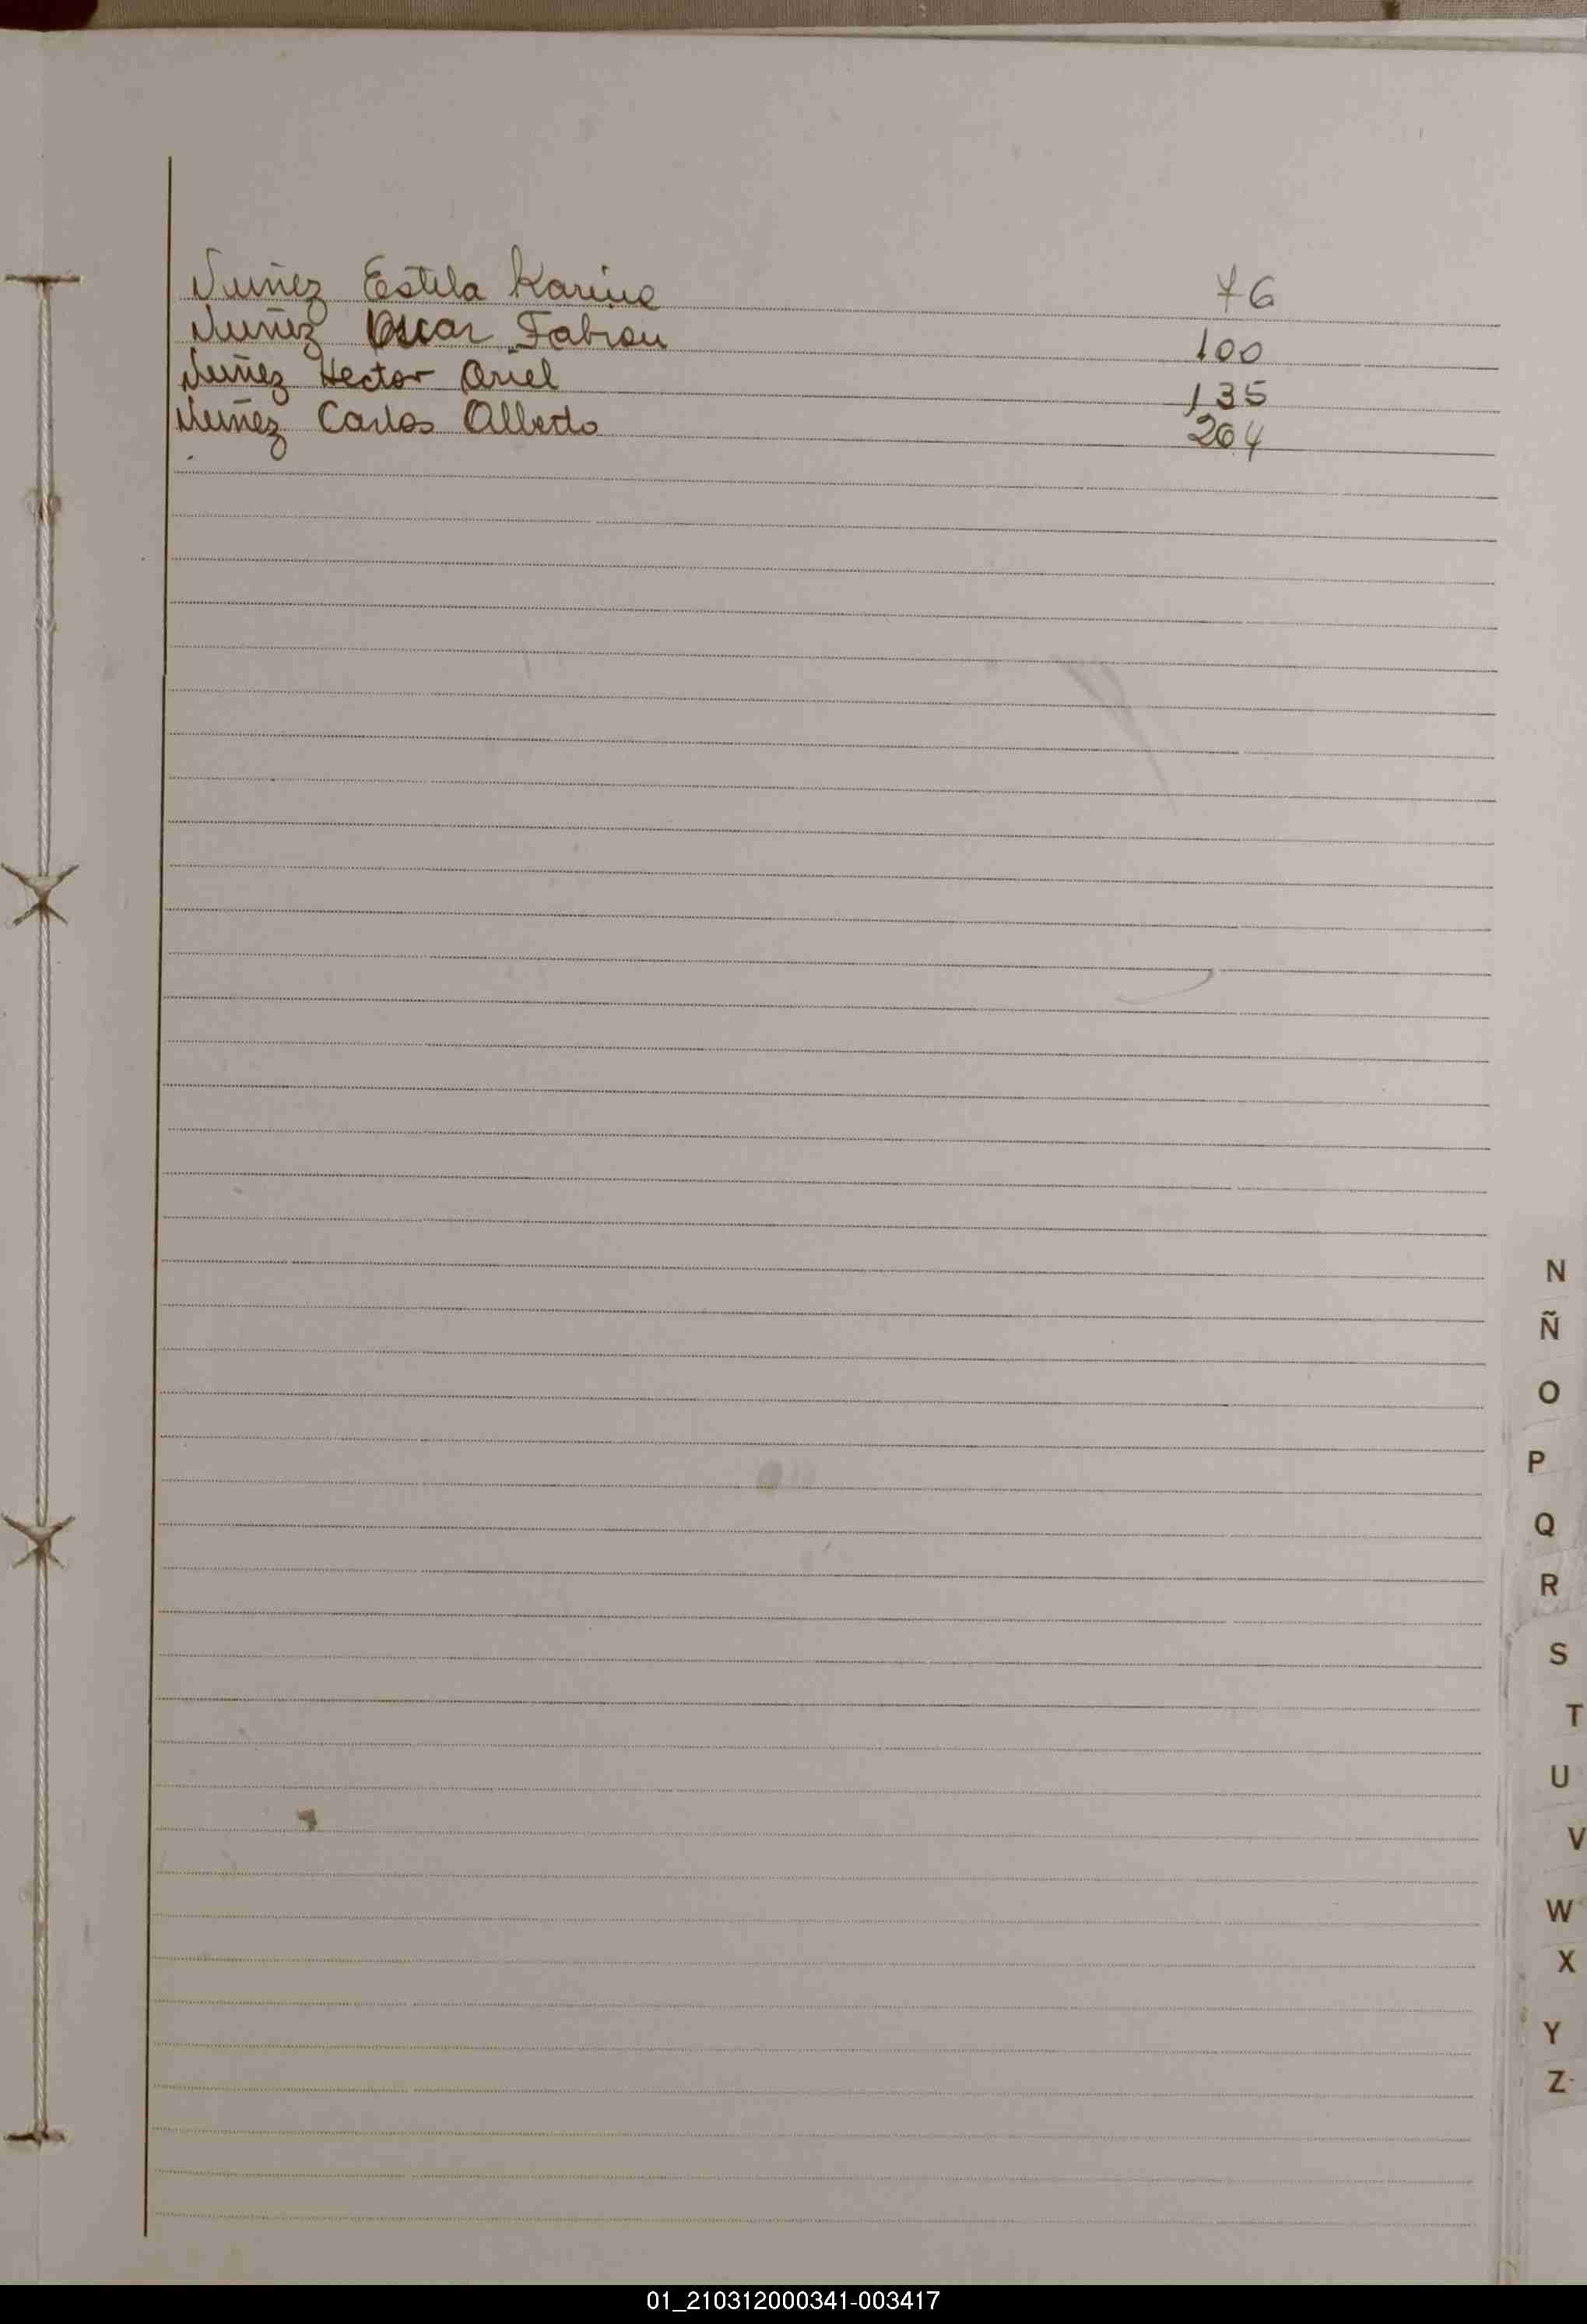 Nuñez Estela Karina 76
Nuñez Oscar Fabian 100
Nuñez Hector Ariel 135
Nuñez Carlos Alberto 204
N
Ñ
O
P
Q
R
S
T
U
V
W
X
Y
Z
01_210312000341-003417